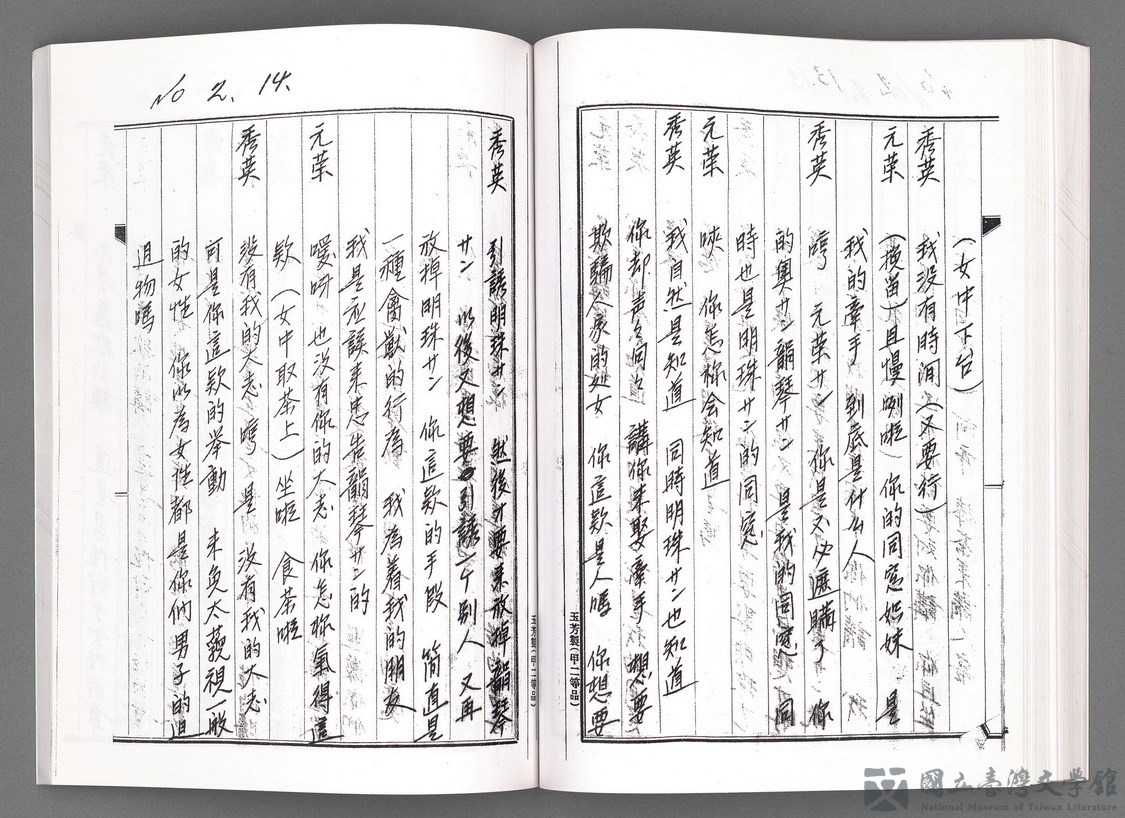 (女中下台)
秀英 我没有時间(又要行)
元荣 (挽留)且慢咧啦 你的同窓姐妹 是
我的牽手 到底是什么人
秀英 哼 元荣サン 你是不必遮瞞了 你
的奥サン韻琴サン 是我的同窓 同
時也是明珠サン的同窓
元荣 唉 你怎祢会知道
秀英 我自然是知道 同時明珠サン也知道
你却声々同々 講你未娶牽手 想要
欺騙人家的処女 你這款是人嗎 你想要
No 2. 14.
秀英 引誘明珠サン 然後才要来放掉韻琴
サン 以後又想要引誘一个别人 又再
放掉明珠サン 你這款的手段 简直是
一種禽獣的行為 我為着我的朋友
我是丞誤来忠告韻琴サン的
元荣 噯呀 也没有你的大志 你怎祢氣得這
款 (女中取茶上)坐啦 食茶啦
秀英 没有我的大志 哼 是 没有我的大志
可是你這款的举動 未免太藐視一般
的女性 你以為女性都是你們男子的迌
迌物嗎
玉芳製(甲二等品)
玉芳製(甲二等品)
國立臺灣文學館
National Museum of Taiwan Literature